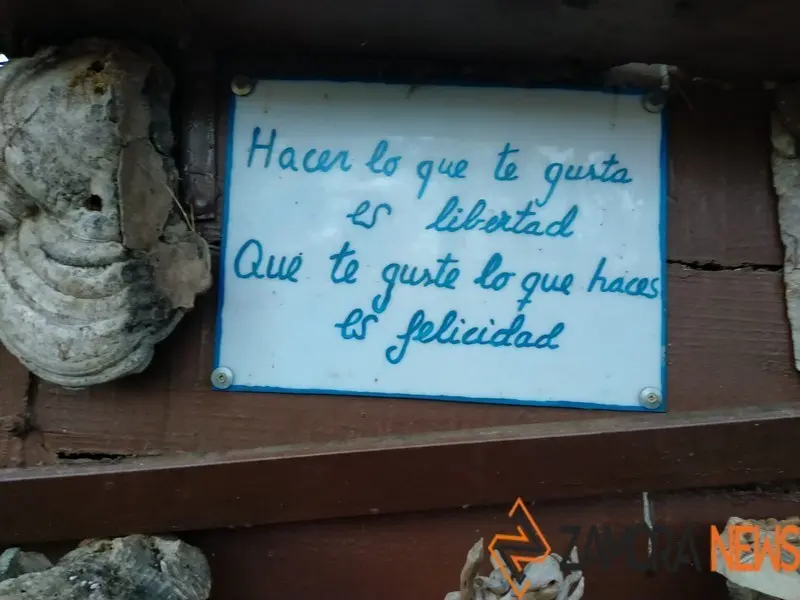 Hacer lo que te gusta
es libertad
Que te guste lo que haces
es felicidad
ZAMORA NEWS